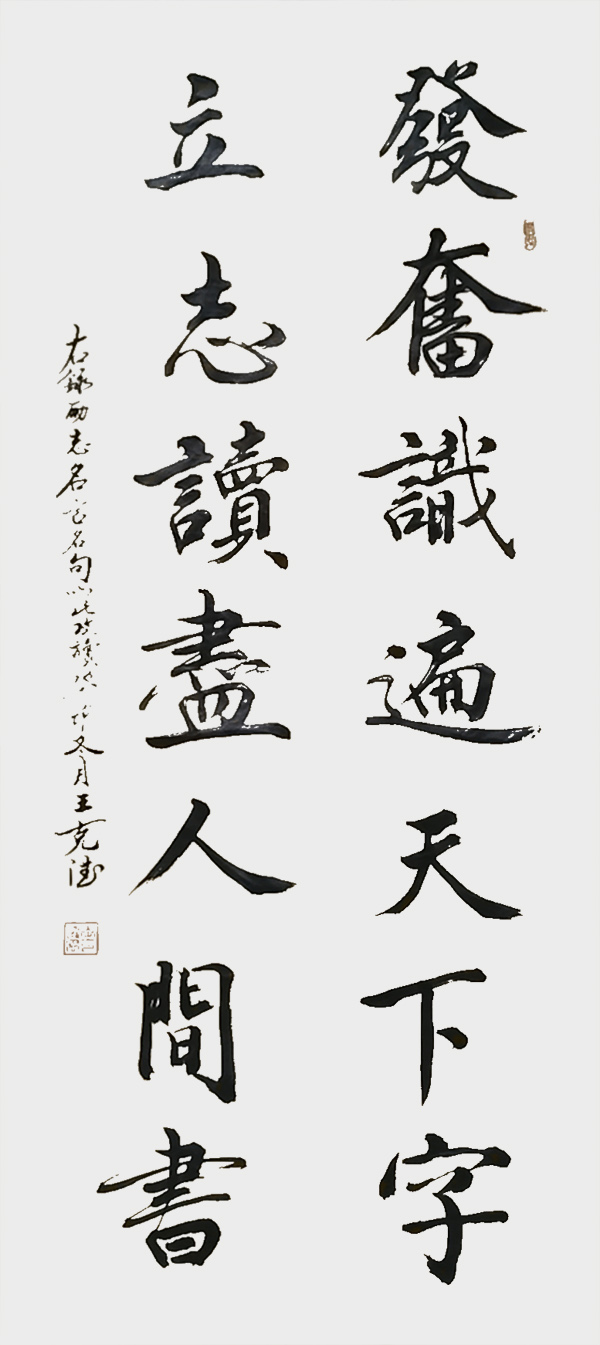 發奮識遍天下字
立志讀盡人間書
右錄勵志名言名句以此 冬月王克